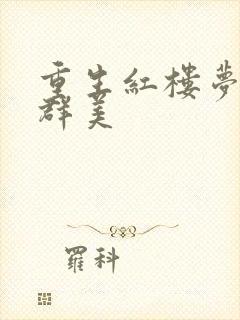 重生紅樓夢
群美
羅科